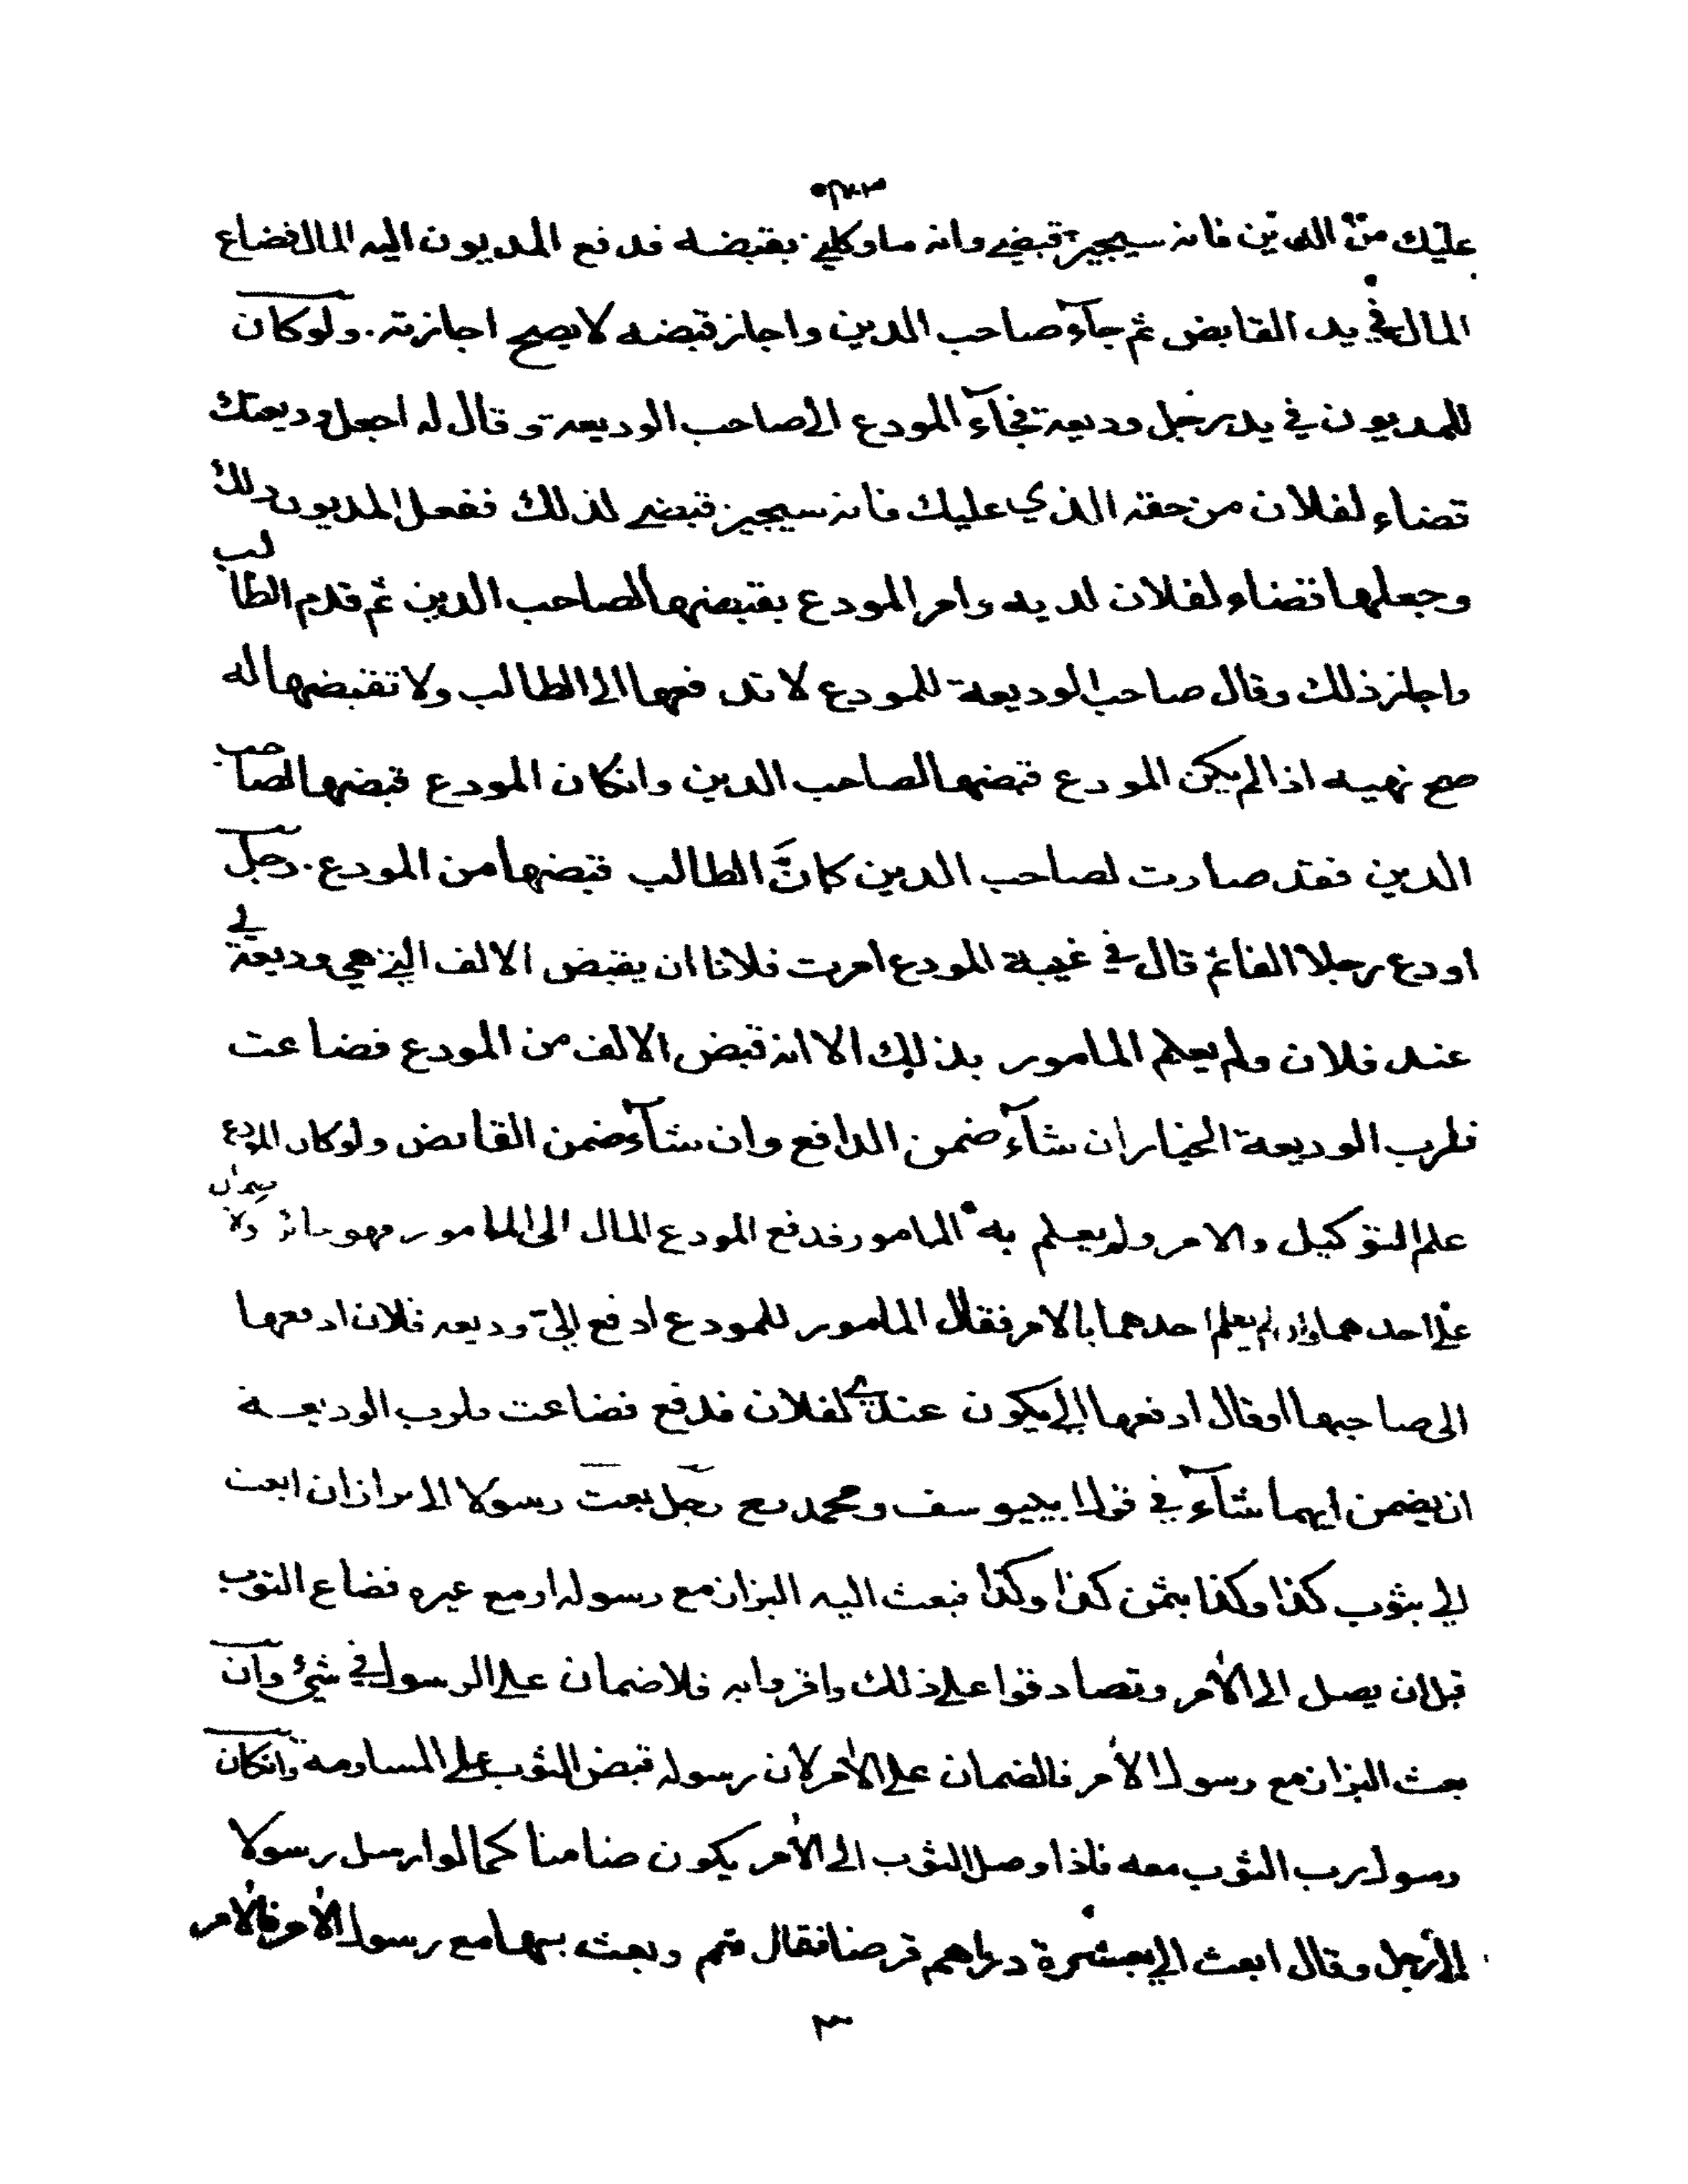 عليك من الدين فانه سيجيز قبضي وانه ما وكلني بقبضه فدفع المديون اليه المال فضاع
المال في يد القابض ثم جآء صاحب الدين واجاز قبضه لا يصح اجازته . ولو كان
للمديون في يد رجل وديعة فجآء المودع الى صاحب الوديعة وقال له اجعل وديعتك
قضاء لفلان من حقه الذي عليك فانه سيجيز قبضي لذلك ففعل المديون ذلك
وجعلها قضاء لفلان لديه وامر المودع بقبضها لصاحب الدين ثم قدم الطالب
واجاز ذلك وقال صاحب الوديعة للمودع لا تدفعها الى الطالب ولا تقبضها له
صح نهيه اذا لم يكن المودع قبضها لصاحب الدين وانكان المودع قبضها لصاحب
الدين فقد صارت لصاحب الدين كانَّ الطالب قبضها من المودع . رجل
اودع رجلا الفا ثم قال في غيبة المودع امرت فلانا ان يقبض الالف التي هي وديعة لي
عند فلان ولم يعلم المامور بذلك الا انه قبض الالف من المودع فضاعت
فلرب الوديعة الخيار ان شآء ضمن الدافع وان شآء ضمن القابض ولو كان المودع
علم التوكيل والامر ولم يعلم به المامور فدفع المودع المال الى المامور فهو جائز ولا ضمان
على احدهما وان لم يعلم احدهما بالامر فقال المامور للمودع ادفع اليّ وديعه فلان ادفعها
الى صاحبها او قال ادفعها الي يكون عندي لفلان فدفع فضاعت فلرب الوديعة
ان يضمن ايهما شآء في قول ابي يوسف ومحمد رجل بعث رسولا الى بزاز ان ابعث
الي بثوب كذا وكذا بثمن كذا وكذا فبعث اليه البزاز مع رسوله او مع غيره فضاع الثوب
قبل ان يصل الى الأمر وتصادقوا على ذلك واقروا به فلا ضمان على الرسول في شئ وان
بعث البزاز مع رسول الأمر فالضمان على الأمر لان رسوله قبض الثوب على المساومة وانكان
رسول رب الثوب معه فاذا وصل الثوب الى الأمر يكون ضامنا كما لو ارسل رسولا
الى رجل وقال ابعث الي بعشرة دراهم قرضا فقال نعم وبعث بها مع رسول الأمر فالأمر